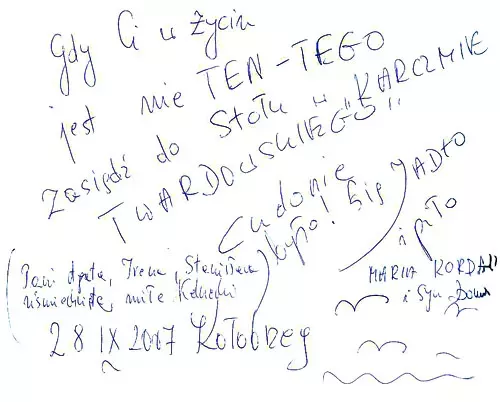 Gdy Ci w życiu
jest nie TEN-TEGO
zasiądź do stołu w "KARCZMIE
TWARDOWSKIEGO"
Cudownie
było! Się JADŁO
i piło
(Pani Agata, Irena, Stanisława
uśmiechnięte, miłe
MARIA
i Syn
28 IX 2007 Kołobrzeg